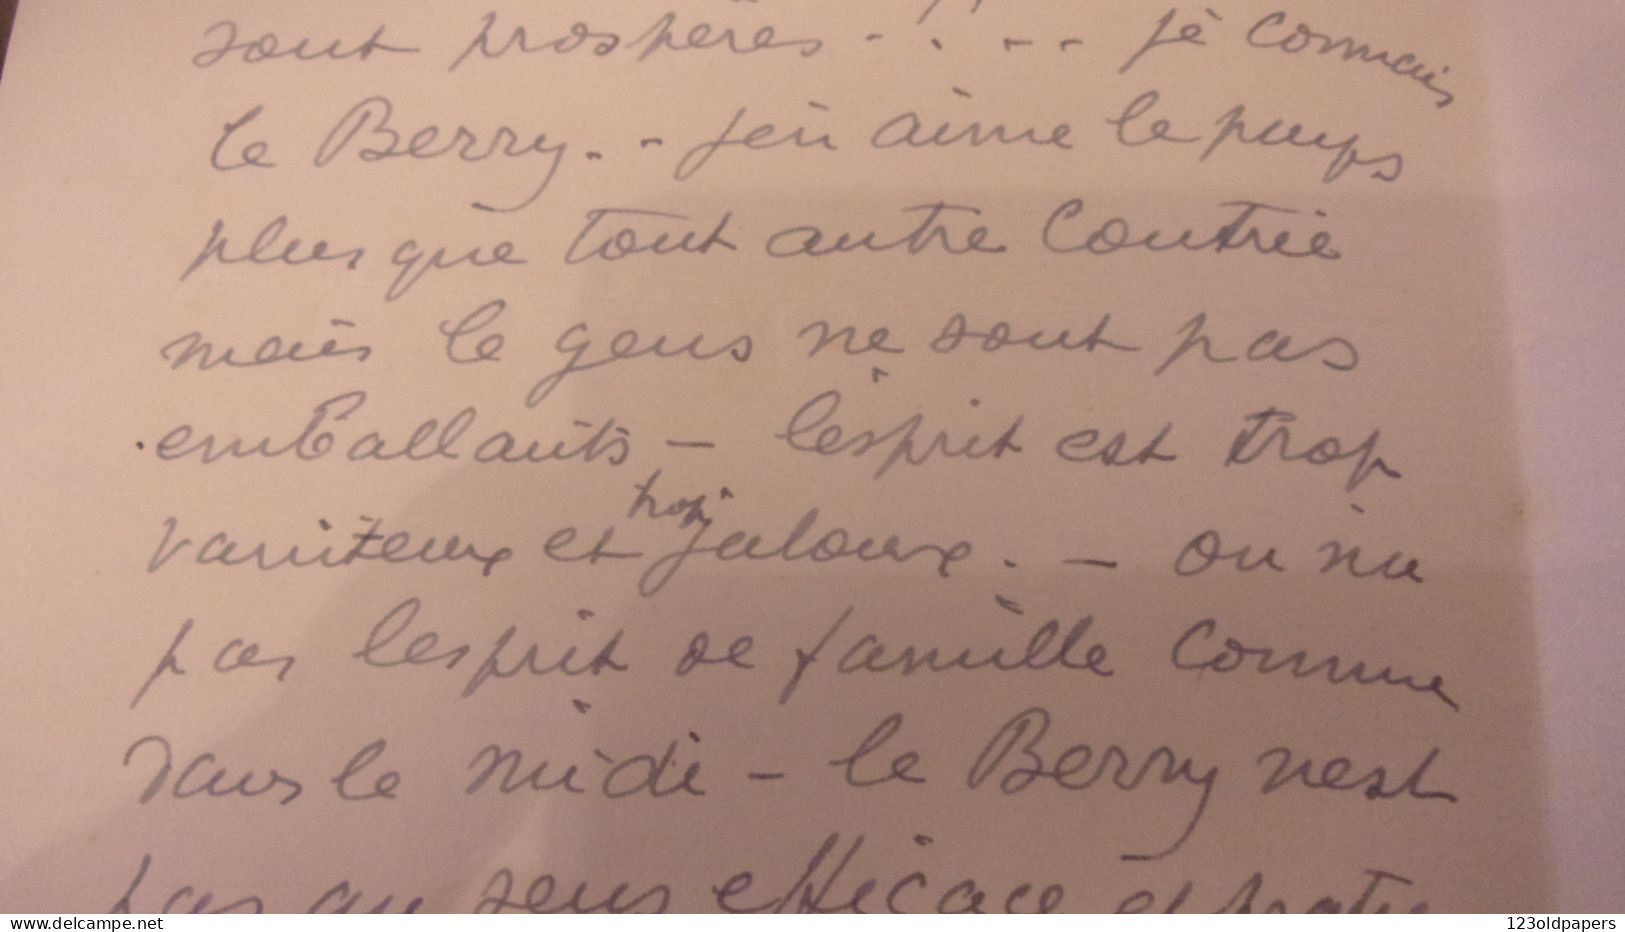 sont prospères - ! . - - je connais
le Berry. - - j'en aime le pays
plus que tout autre Contrée
mais le gens ne sont pas
emballants - l'esprit est trop
vaniteux et trop jaloux. - on n'a
pas l'esprit de famille comme
dans le midi - le Berry n'est
pas au sens efficace et pratic
www.delcampe.net
123oldpapers